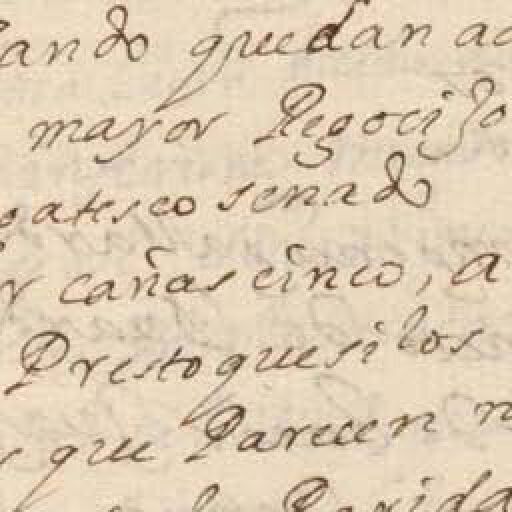 ando quedan ac
mayor Regocijo
gatesco senado
r cañas cinco, a
Presto que si los
r que Parecen n
Parida